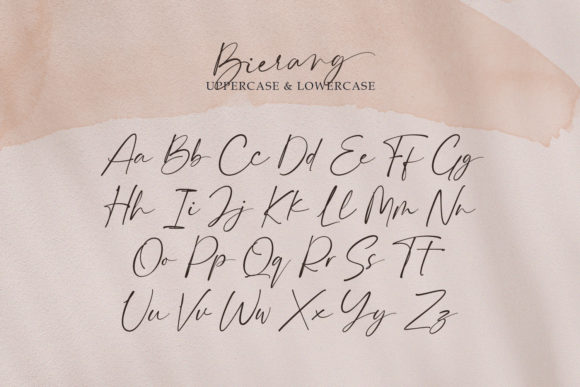 Bierang
UPPERCASE & LOWERCASE
Aa Bb Cc Dd Ee Ff Gg
Hh Ii Jj Kk Ll Mm Nn
Oo Pp Qq Rr Ss Tt
Uu Vv Ww Xx Yy Zz